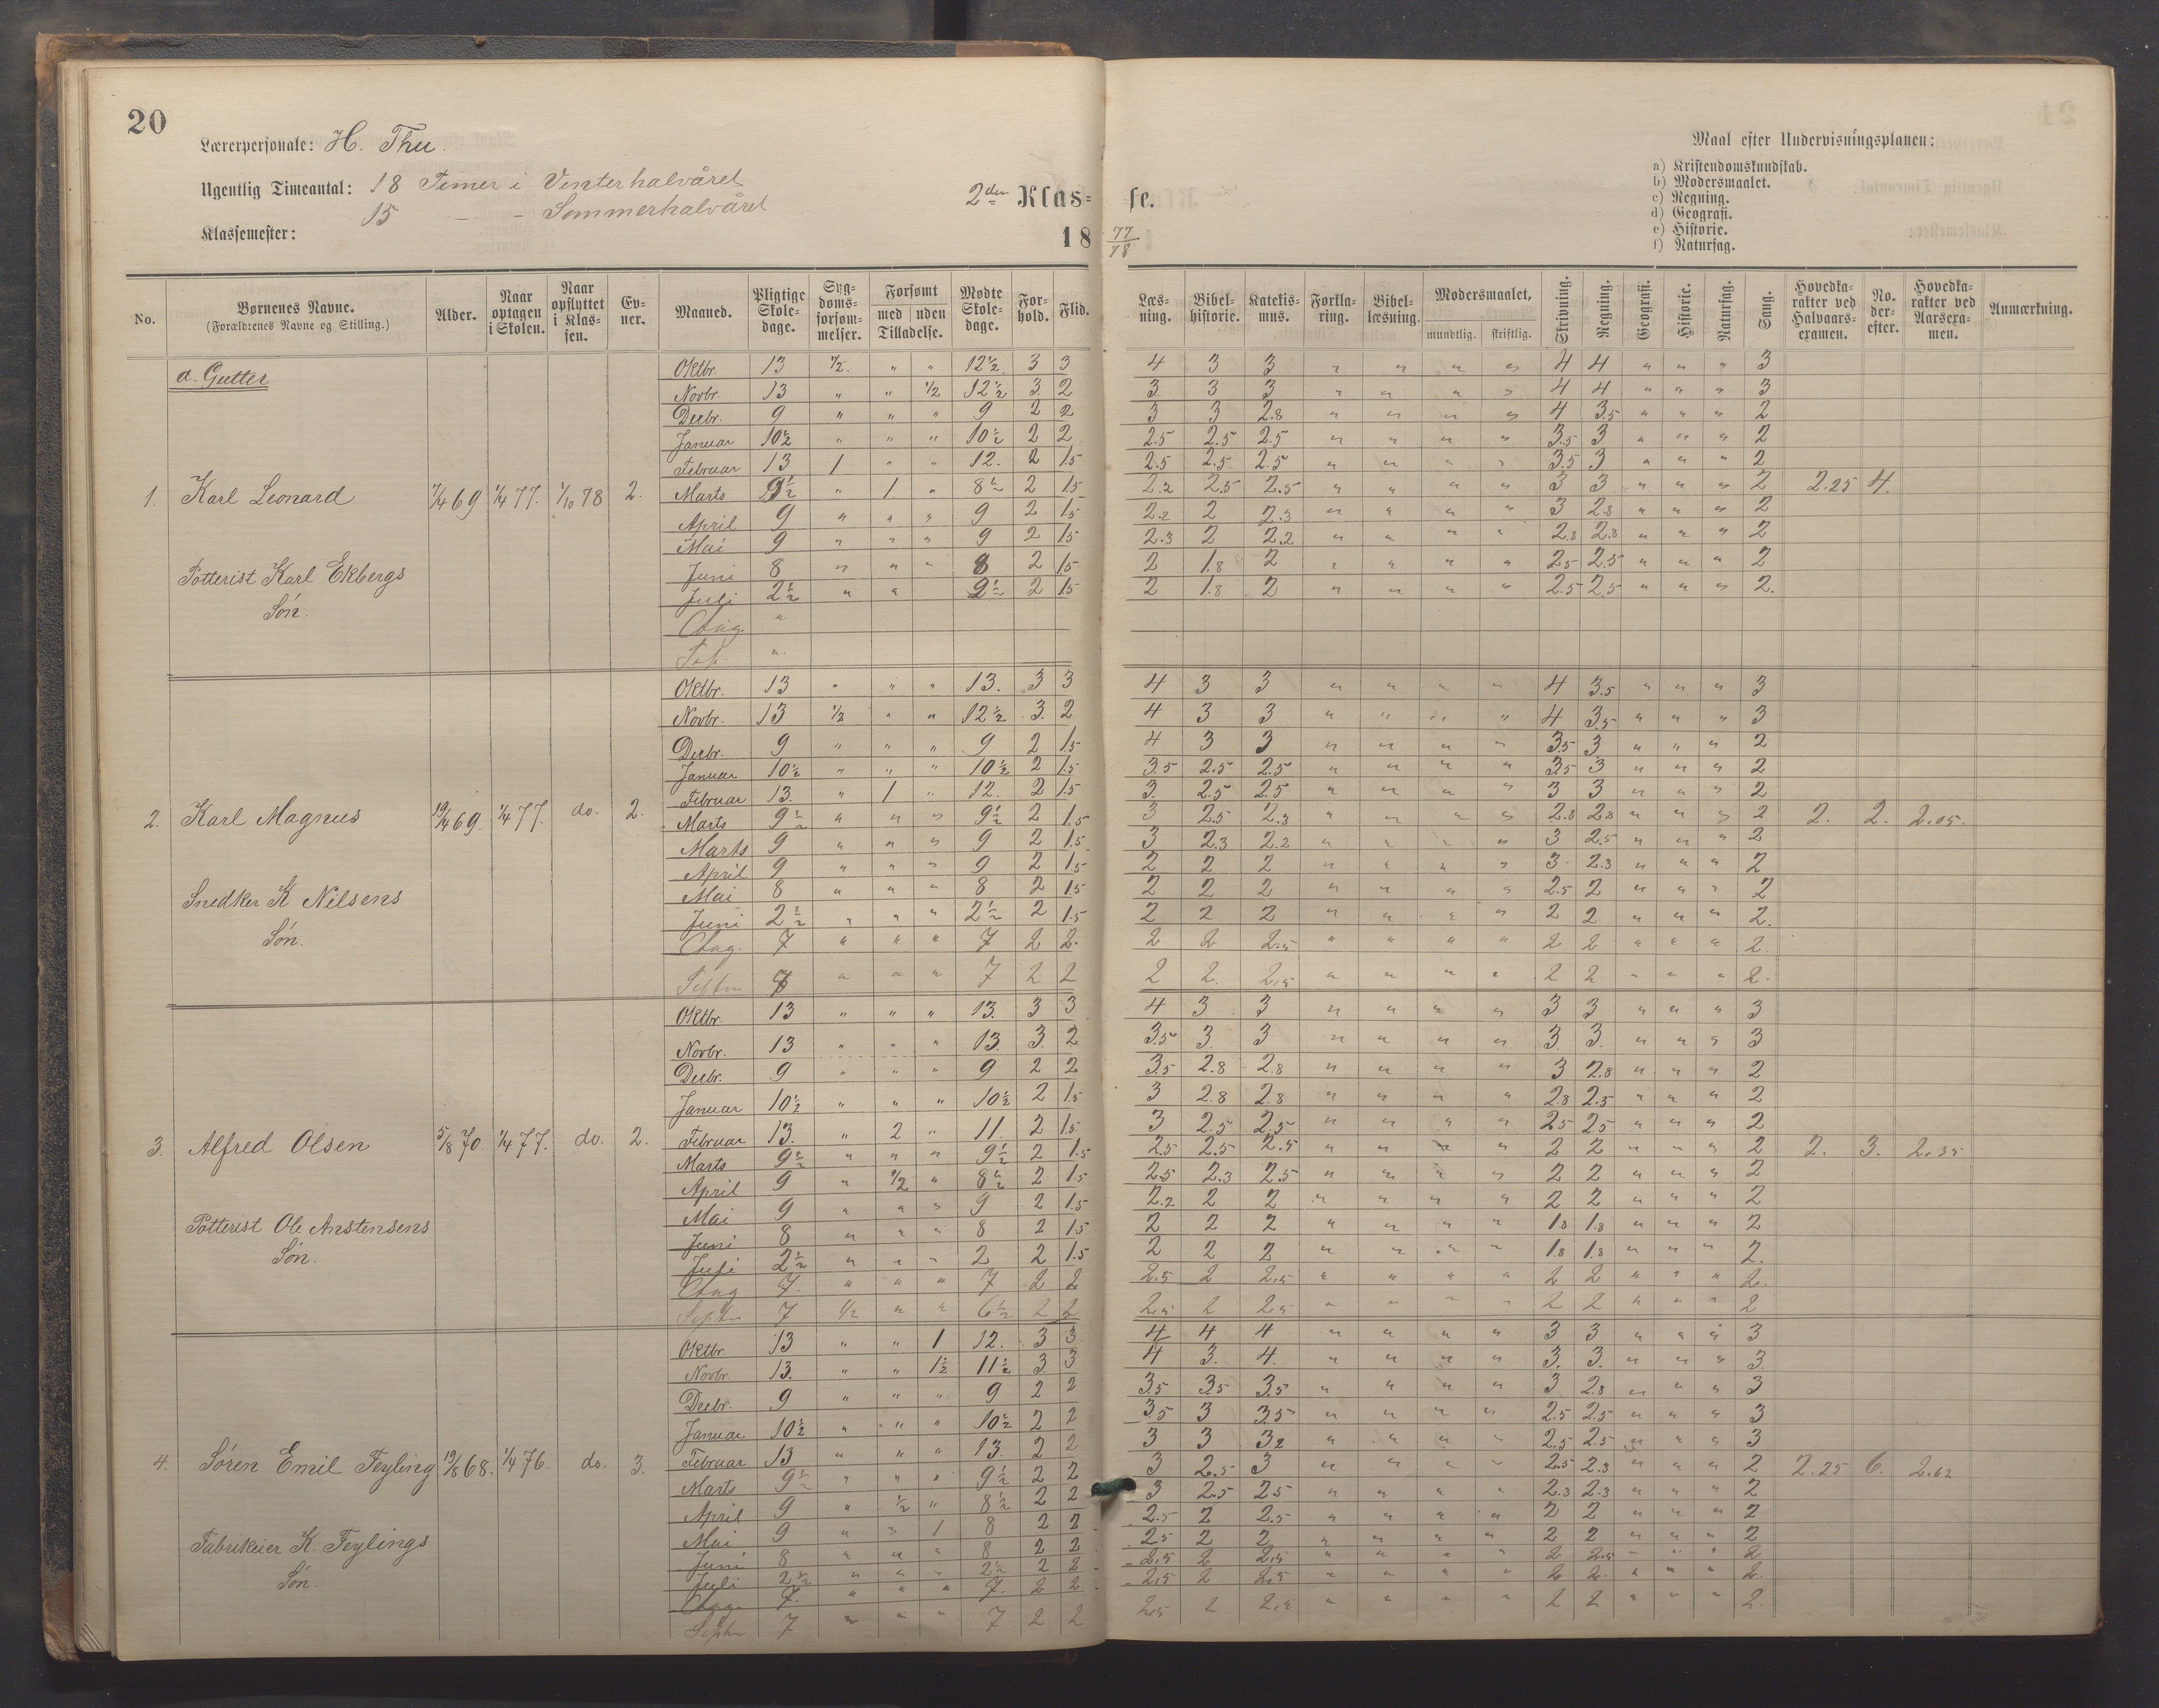 20
Lærerpersonale: H. Thu.
Ugentlig Timeantal: 18 Timer i Vinterhalvåret
15 – – Sommerhalvåret
Klassemester:
2den Klas- se.
18 77/78
Maal efter Undervisningsplanen:
a) Kristendomskundskab.
b) Modersmaalet.
c) Regning.
d) Geografi.
e) Historie.
f) Naturfag.
No. Børnenes Navne. (Forældrenes Navne og Stilling.) Alder. Naar optagen i Skolen. Naar opflyttet i Klassen. Evner. Maaned. Pligtige Skoledage. Sygdomsforsømmelser. Forsømt med uden Tilladelse. Mødte Skoledage. Forhold. Flid. Læsning. Bibelhistorie. Katekismus. Forklaring. Bibellæsning. Modersmaalet, mundtlig. skriftlig. Skrivning. Regning. Geografi. Historie. Naturfag. Sang. Hovedkarakter ved Halvaarsexamen. No. derefter. Hovedkarakter ved Aarsexamen. Anmærkning.
a. Gutter
Oktbr. 13 1/2. " " 12 1/2. 3 3 4 3 3 " " " " 4 4 " " " 3
Novbr. 13 " " 1/2 12 1/2 3. 2 3 3 3 " " " " 4 4 " " " 3
Decbr. 9 " " " 9 2 2 3 3 2.8 " " " " 4 3.5 " " " 2
Januar 10 1/2 " " " 10 1/2 2 2 2.5 2.5 2.5 " " " " 3.5 3 " " " 2
Februar 13 1 " " 12. 2 1.5 2.5 2.5. 2.5 " " " " 3.5 3 " " " 2
1. Karl Leonard 7/4 69 1/4 77. 1/10 78 2. Marts 9 1/2 " 1 " 8 1/2 2 1.5 2.2 2.5 2.5 " " " " 3 3 " " " 2 2.25 4.
April 9 " " " 9 2 1.5 2.2 2 2.3 " " " " 3 2.8 " " " 2
Mai 9 " " " 9 2 1.5 2.3 2 2.2 " " " " 2.8 2.8 " " " 2
Potterist Karl Ekbergs Juni 8 " " " 8 2 1.5 2 1.8 2 " " " " 2.5 2.5 " " " 2
Søn. Juli 2 1/2 " " 2 1/2 2 1.5 2 1.8 2 " " " " 2.5 2.5 " " " 2.
Aug. "
Sep. "
Oktbr. 13 " " " 13. 3 3 4 3 3 " " " " 4 3.5 " " " 3
Novbr. 13 1/2 " " 12 1/2 3. 2 4 3 3 " " " " 4 3.5 " " " 3
Decbr. 9 " " " 9 2 1.5 4 3 3 " " " " 3.5 3 " " " 2
Januar 10 1/2 " " " 10 1/2 2 1.5 3.5 2.5 2.5 " " " " 3.5 3 " " " 2
Februar 13. " 1 " 12. 2 1.5 3. 2.5 2.5 " " " " 3 3 " " " 2
2. Karl Magnus 19/4 69. 1/4 77. do. 2. Marts 9 1/2 " " " 9 1/2 2 1.5 3 2.5 2.3 " " " " 2.8 2.8 " " " 2 2. 2. 2.05.
Marts 9 " " " 9 2 1.5 3 2.3 2.2 " " " " 3 2.5 " " " 2
April 9 " " " 9 2 1.5 2 2 2 " " " " 3 2.3 " " " 2
Snedker K Nilsens Mai 8 " " " 8 2 1.5 2 2 2 " " " " 2.5 2 " " " 2
Juni 2 1/2 " " " 2 1/2 2 1.5 2 2 2 " " " " 2 2 " " " 2.
Søn. Aug. 7 " " " 7 2 2. 2 2 2.5 " " " " 2 2 " " " 2.
Septm 7 " " " 7 2 2 2 2. 2.5 " " " " 2 2 " " " 2.
Oktbr. 13 " " " 13. 3 3 4 3 3 " " " " 3 3 " " " 3
Novbr. 13 " " " 13. 3. 2 3.5 3. 3 " " " " 3. 3. " " " 3
Decbr. 9 " " " 9 2 2 3.5 2.8 2.8 " " " " 3 2.8 " " " 2
Januar 10 1/2 " " " 10 1/2 2 1.5 3 2.8 2.8 " " " " 2.8 2.5 " " " 2
3. Alfred Olsen 5/8 70. 1/4 77. do. 2. Februar 13. " 2 " 11. 2 1.5 3 2.5 2.5 " " " " 2.5 2.5 " " " 2
Marts 9 1/2 " " " 9 1/2 2 1.5 2.5 2.5 2.5 " " " " 2 2 " " " 2 2. 3. 2.35
April 9 " 1/2 " 8 1/2 2 1.5 2.5 2.3 2.5 " " " " 2 2 " " " 2
Potterist Ole Anstensens Mai 9 " " " 9 2 1.5 2.2 2 2 " " " " 2 2 " " " 2
Juni 8 " " " 8 2 1.5 2 2 2 " " " " 1.8 1.8 " " " 2
Søn. Juli 2 1/2 " " " 2 2 1.5 2 2 2 " " " " 1.8 1.8 " " " 2.
Aug 7. " " " 7 2 2 2.5 2 2.5 " " " " 2 2 " " " 2.
Septm 7 1/2 " " 6 1/2 2 2 2.5 2 2.5 " " " " 2 2 " " " 2
Oktbr. 13 " " 1 12. 3 3 4 4 4 " " " " 3 3 " " " 3
Novbr. 13. " " 1 1/2 11 1/2 3. 3 4 3. 4. " " " " 3. 3. " " " 3.
Decbr. 9 " " " 9 2 2 3.5 3.5 3.5 " " " " 3 2.8 " " " 3
Januar 10 1/2 " " " 10 1/2 2 2 3.5 3 3.5 " " " " 2.5 2.5 " " " 3
4. Søren Emil Feyling 19/8 68. 1/4 76. do. 3. Februar 13 " " " 13. 2 2 3 3 3.2 " " " " 2.5 2.5 " " " 3
Marts 9 1/2 " " " 9 1/2 2 2 3 2.5 3 " " " " 2.5 2.3 " " " 2 2.25 6. 2.62
April 9 " 1/2 " 8 1/2 2 2 3 2.5 2.5 " " " " 2.3 2.3 " " " 2
Fabrikeier K Feylings Mai 9 " " 1 8 2 2 2.5 2 2.5 " " " " 2 2 " " " 2
Juni 8 " " " 8 2 2 2.5 2 2 " " " " 2 2 " " " 2
Søn. Juli 2 1/2 " " " 2 1/2 2 2 2.5 2 2.5 " " " " 2 2.5 " " " 2
Aug. 7. " " " 7. 2 2 2.5 2 2.5 " " " " 2 2. " " " 2.
Septm 7 " " " 7 2 2 2.5 2 2.5 " " " " 2 2 " " " 2.